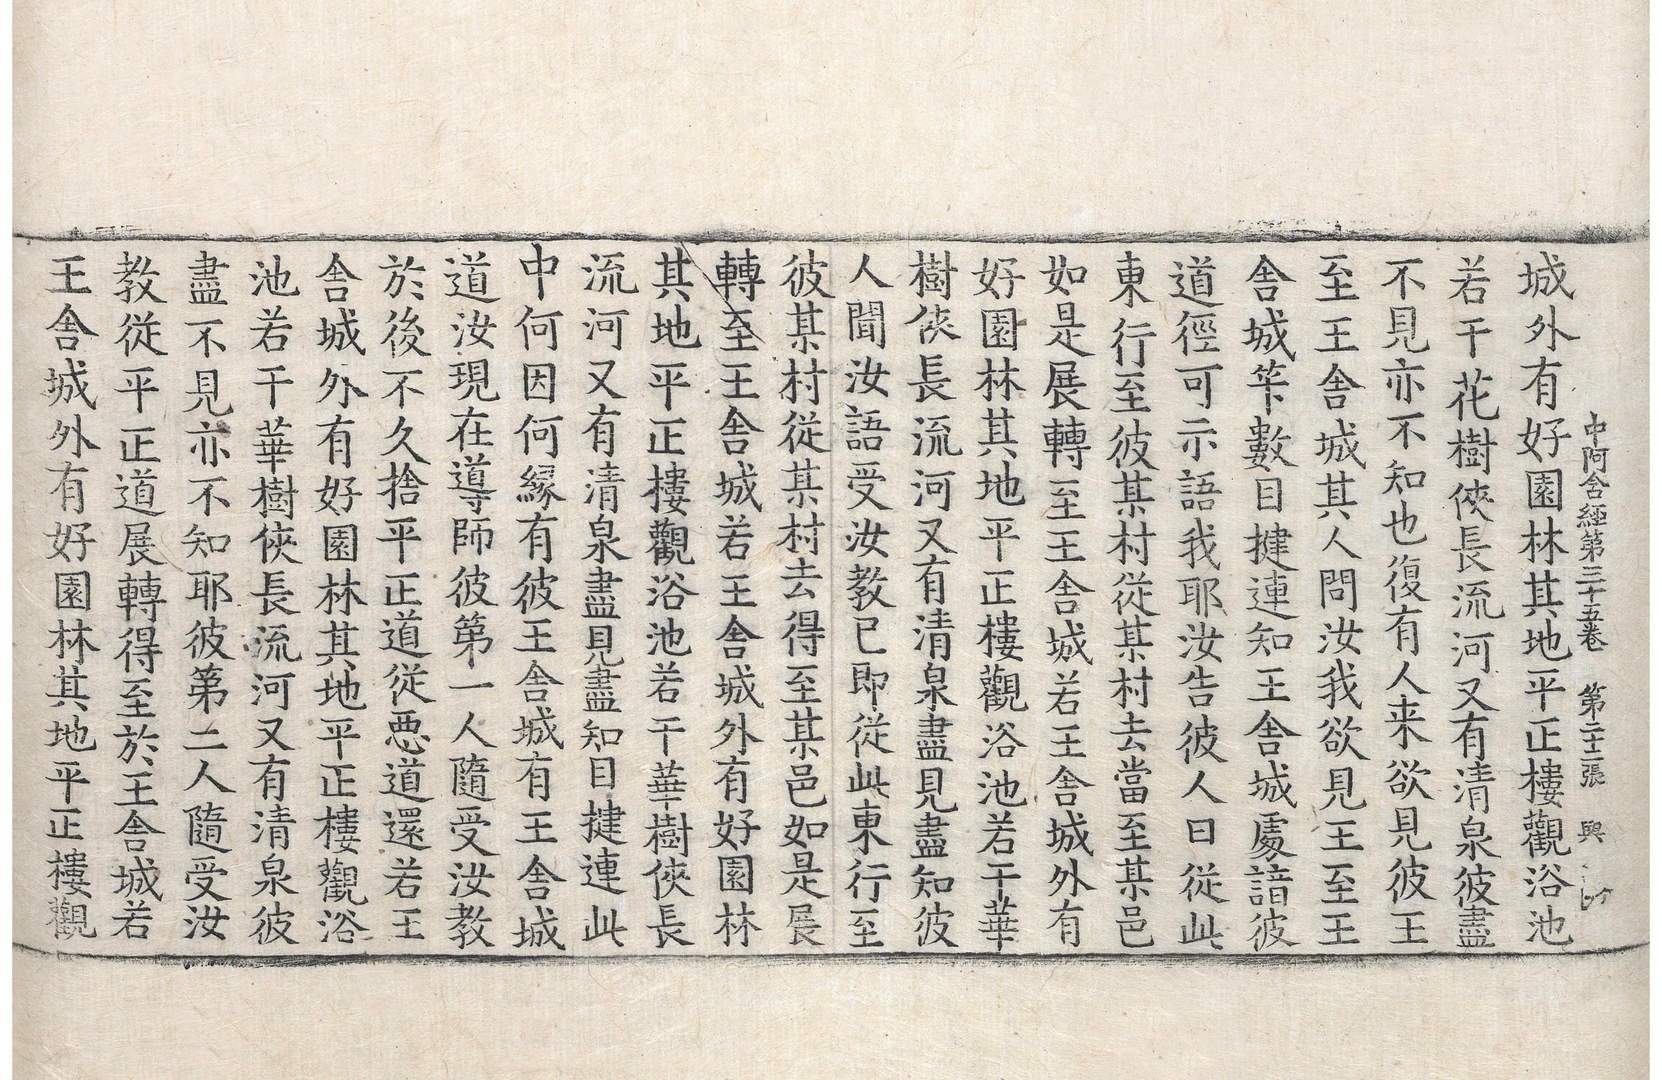 中阿含經第三十五卷 第張 興
城外有好園林其地平正樓觀浴池
若干花樹俠長流河又有清泉彼盡
不見亦不知也復有人来欲見彼王
至王舍城其人問汝我欲見王至王
舍城筭數目揵連知王舍城處諳彼
道徑可示語我耶汝告彼人曰從此
東行至彼某村從某村去當至某邑
如是展轉至王舍城若王舍城外有
好園林其地平正樓觀浴池若干華
樹俠長流河又有清泉盡見盡知彼
人聞汝語受汝教已即從此東行至
彼某村從某村去得至某邑如是展
轉至王舍城若王舍城外有好園林
其地平正樓觀浴池若干華樹俠長
流河又有清泉盡見盡知目揵連此
中何因何緣有彼王舍城有王舍城
道汝現在導師彼第一人隨受汝教
於後不久捨平正道從悪道還若王
舍城外有好園林其地平正樓觀浴
池若干華樹俠長流河又有清泉彼
盡不見亦不知耶彼第二人隨受汝
教從平正道展轉得至於王舍城若
王舍城外有好園林其地平正樓觀